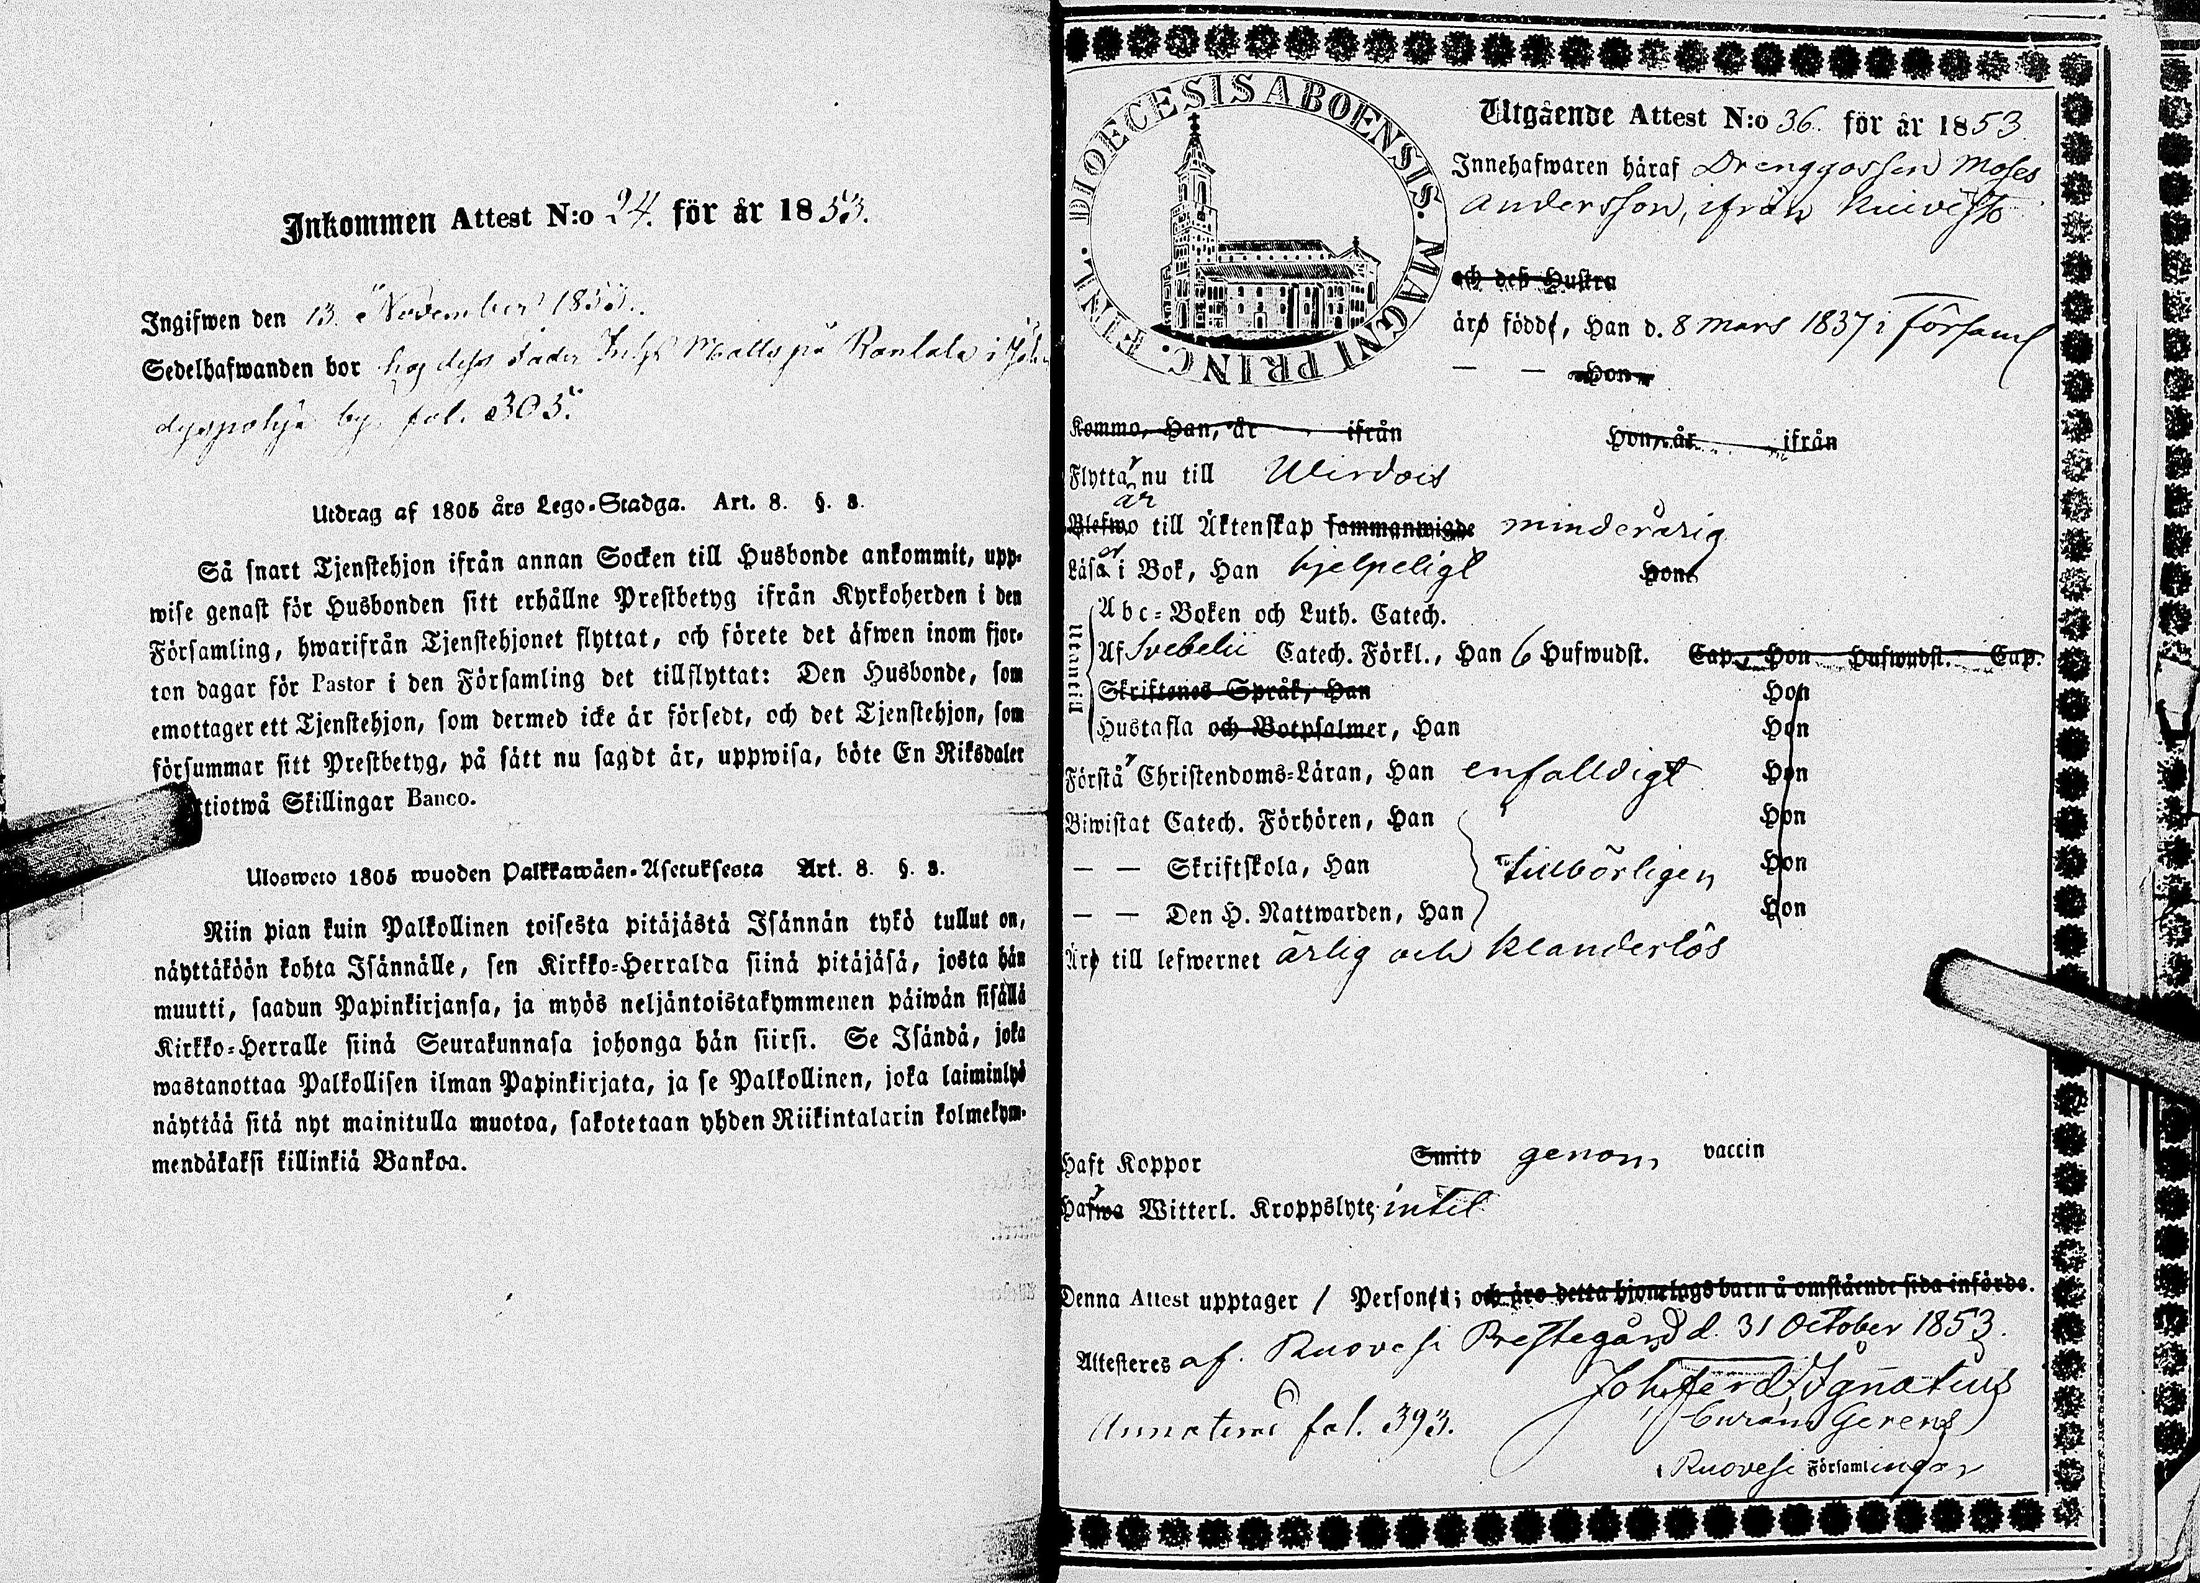 Inkommen Attest N:o 24. för år 1853.
Ingifwen den 13. November 1853.
Sedelhafwanden bor hos dess fader Inh. Matts på Rantala i
by fol. 305.
Utdrag af 1805 års Lego-Stadga. Art. 8. §. 8.
Så snart Tjenstehjon ifrån annan Socken till Husbonde ankommit, upp-
wise genast för Husbonden sitt erhållne Prestbetyg ifrån Kyrkoherden i den
Församling, hwarifrån Tjenstehjonet flyttat, och förete det äfwen inom fjor-
ton dagar för Pastor i den Församling det tillflyttat: Den Husbonde, som
emottager ett Tjenstehjon, som dermed icke är försedt, och det Tjenstehjon, som
försummar sitt Prestbetyg, på sätt nu sagdt är, uppwisa, böte En Riksdaler
ttiotwå Skillingar Banco.
Ulosweto 1805 wuoden Palkkawäen-Asetuksesta Art. 8. §. 8.
Niin pian kuin Palkollinen toisesta pitäjästä Isännän tykö tullut on,
näyttäköön kohta Isännälle, sen Kirkko-Herralda siinä pitäjäsä, josta hän
muutti, saadun Papinkirjansa, ja myös neljäntoistakymmenen päiwän sisällä
Kirkko-Herralle siinä Seurakunnasa johonga hän siirsi. Se Isändä, joka
wastanottaa Palkollisen ilman Papinkirjata, ja se Palkollinen, joka laiminlyö
näyttää sitä nyt mainitulla muotoa, sakotetaan yhden Riikintalarin kolmekym-
mendäkaksi killinkiä Bankoa.
DIOECESIS ABOENSIS. MAGNI PRINC. FINL.
Utgående Attest N:o 36. för år 1853
Innehafwaren häraf Drenggossen Moses
Andersson, ifrån Kuivisto
och deß Hustru
äro född, Han d. 8 Mars 1837 i Församl
— — Hon
Kommo, Han, år ifrån Hon, år ifrån
Flyttar nu till Wirdois
är
Blefwo till Äktenskap sammanwigde minderårig
Läsa i Bok, Han hjelpeligt Hon
Utantill
Abc-Boken och Luth. Catech.
Af Svebelii Catech. Förkl., Han 6 Hufwudst. Cap., Hon Hufwudst. Cap.
Skriftenes Språk, Han Hon
Hustafla och Botpsalmer, Han Hon
Förstår Christendoms-Läran, Han enfalldigt Hon
Biwistat Catech. Förhören, Han Hon
— — Skriftskola, Han tillbörligen Hon
— — Den H. Nattwarden, Han Hon
Äro till lefwernet ärlig och klanderlös
Haft Koppor Smitt genom vaccin
Hafwa Witterl. Kroppslyte, intet
Denna Attest upptager 1 Person; och äro detta hjonelags barn å omstående sida införde.
Attesteres af. Ruovesi Prestegård d. 31 October 1853.
Joh. Ferd. Ignatius
Curam Gerens
fol. 393.
i Ruovesi Församlingar